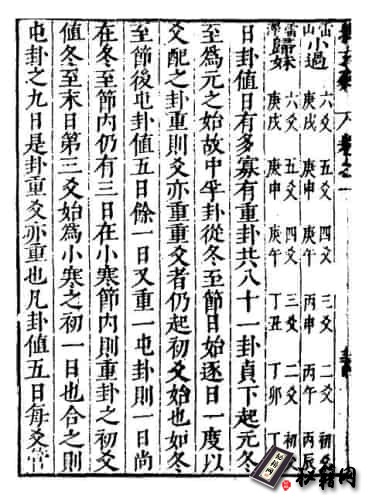 卷之一
雷山小過 六爻 五爻 四爻 三爻 二爻 初爻
庚戌 庚申 庚午 丙申 丙午 丙辰
歸妹 六爻 五爻 四爻 三爻 二爻 初
庚戌 庚申 庚午 丁丑 丁卯 丁
日卦值日有多寡有重卦共八十一卦貞下起元冬
至爲元之始故中孚卦從冬至節日始逐日一度以
爻配之卦重則爻亦重重爻者仍起初爻始也如冬
至節後屯卦值五日餘一日又重一屯卦則一日尚
在冬至節內仍有三日在小寒節內則重卦之初爻
值冬至末日第三爻始爲小寒之初一日也合之則
屯卦之九日是卦重爻亦重也凡卦值五日每爻管
秘籍网